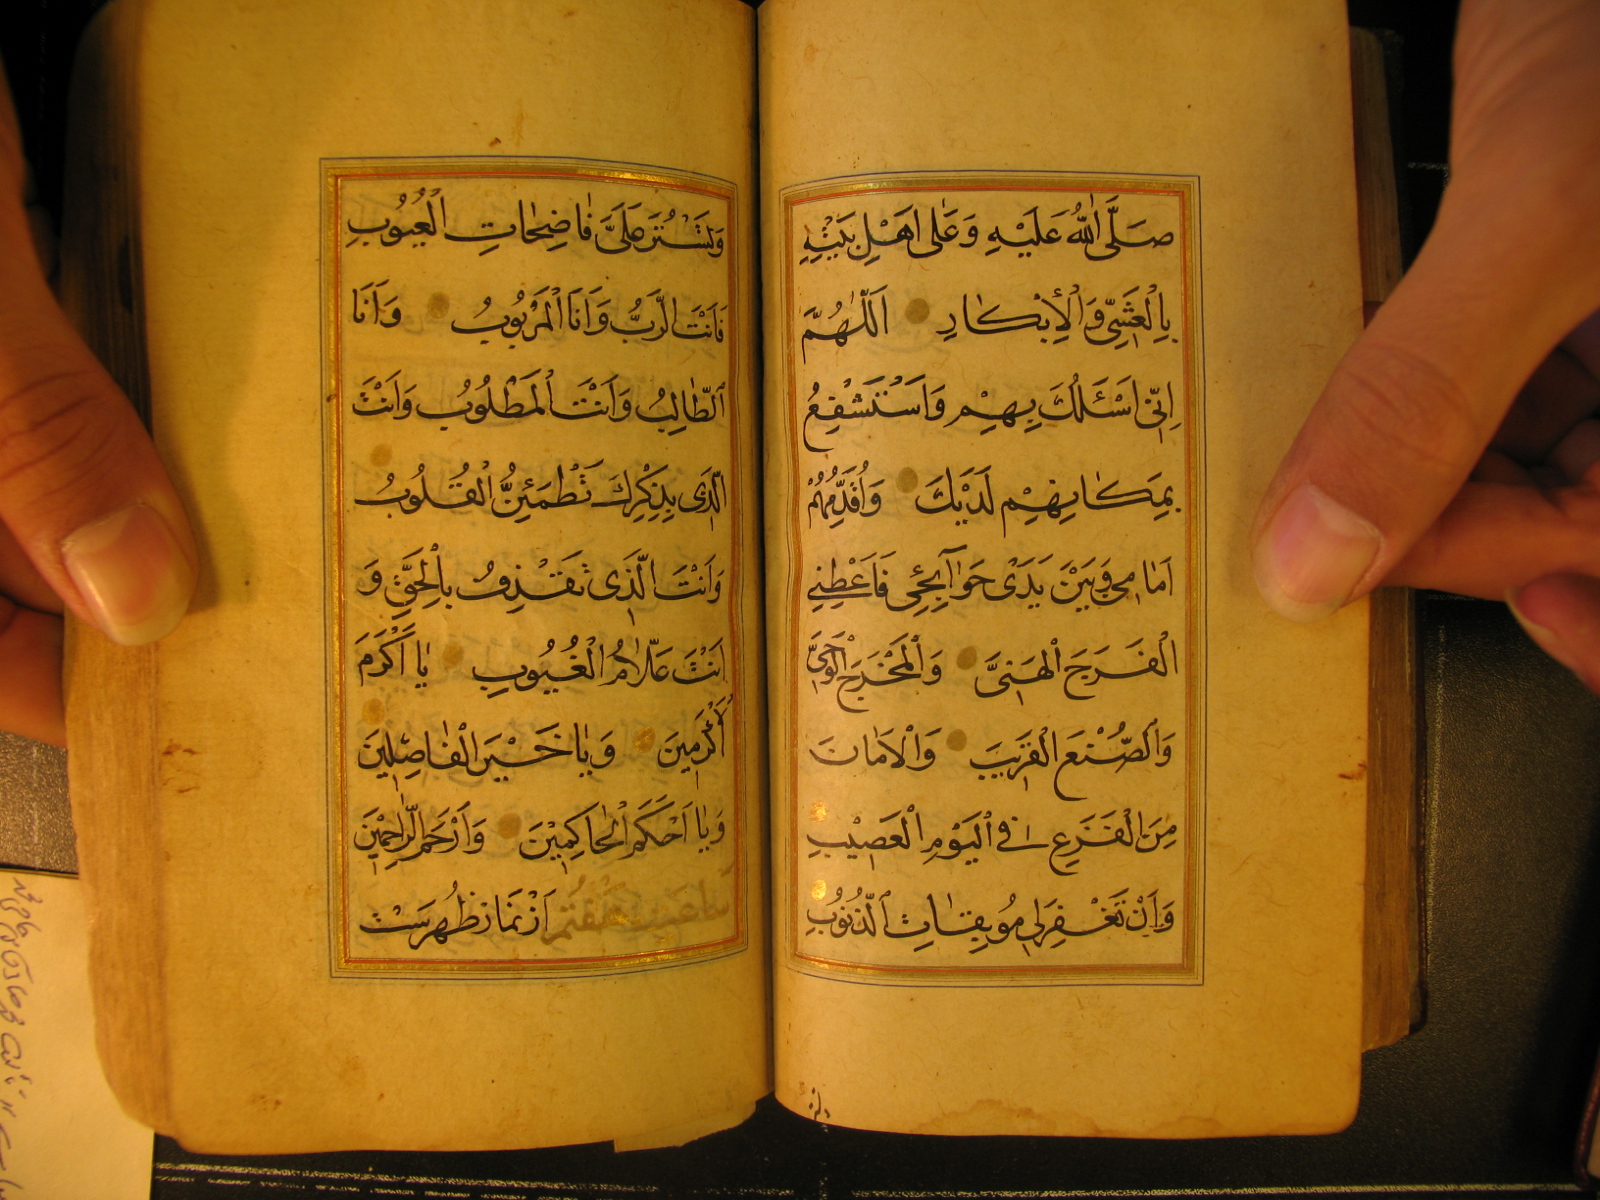 صَلَّى اللّٰهُ عَلَيْهِ وَعَلٰى اَهْلِ بَيْتِهِ
بِالْعَشِىِّ وَالْاِبْكَارِ اَللّٰهُمَّ
اِنّٖى اَسْئَلُكَ بِهِمْ وَاَسْتَشْفِعُ
بِمَكَانِهِمْ لَدَيْكَ وَاُقَدِّمُهُمْ
اَمَامٖى وَبَيْنَ يَدَىْ حَوَآئِجٖى فَاَعْطِنٖى
الْفَرَجَ الْهَنِىَّ وَالْمَخْرَجَ الْوَحِىَّ
وَالصُّنْعَ الْقَرٖيبَ وَالْاَمَانَ
مِنَ الْفَزَعِ فِى الْيَوْمِ الْعَصٖيبِ
وَاَنْ تَغْفِرَ لٖى مُوبِقَاتِ الذُّنُوبِ
وَتَسْتُرَ عَلَىَّ فَاضِحَاتِ الْعُيُوبِ
فَاَنْتَ الرَّبُّ وَاَنَا الْمَرْبُوبُ وَاَنَا
الطَّالِبُ وَاَنْتَ الْمَطْلُوبُ وَاَنْتَ
الَّذٖى بِذِكْرِكَ تَطْمَئِنُّ الْقُلُوبُ
وَاَنْتَ الَّذٖى تَقْذِفُ بِالْحَقِّ وَ
اَنْتَ عَلَّامُ الْغُيُوبِ يَا اَكْرَمَ
الْاَكْرَمٖينَ وَيَا خَيْرَ الْفَاصِلٖينَ
وَيَا اَحْكَمَ الْحَاكِمٖينَ وَاَرْحَمَ الرَّاحِمٖينَ
از نماز ظهرست